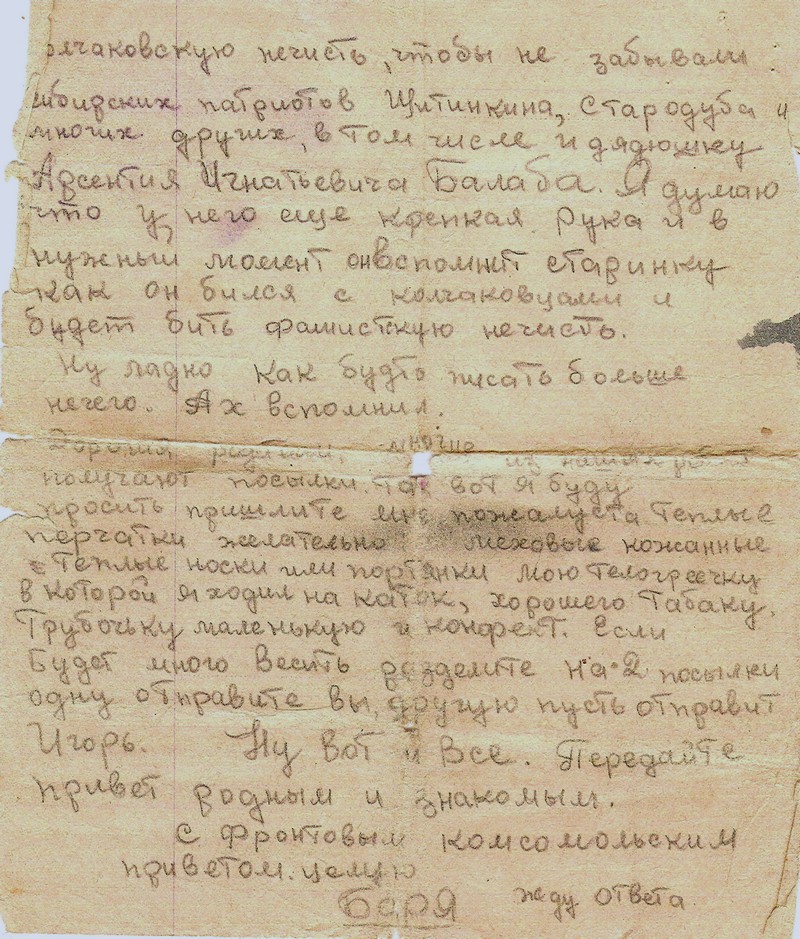 олчаковскую нечисть, чтобы не забывали
сибирских патриотов Щитинкина, Стародуба и
многих других, в том числе и дядюшку
Арсентия Игнатьевича Балаба. Я думаю
что у него еще крепкая рука и в
нужный момент он вспомнит старинку
как он бился с колчаковцами и
будет бить фашисткую нечисть.
Ну ладно как будто писать больше
нечего. Ах вспомнил.
Дорогие родные, многие из наших ребят
получают посылки. Так вот я буду
просить пришлите мне пожалуста теплые
перчатки желательно меховые кожанные
теплые носки или портянки мою телогреечку
в которой я ходил на каток, хорошего табаку.
Трубочьку маленькую и конфект. Если
будет много весить разделите на 2 посылки
одну отправите вы, другую пусть отправит
Игорь. Ну вот и все. Передайте
привет родным и знакомым.
С фронтовым комсомольским
приветом. целую
Боря жду ответа